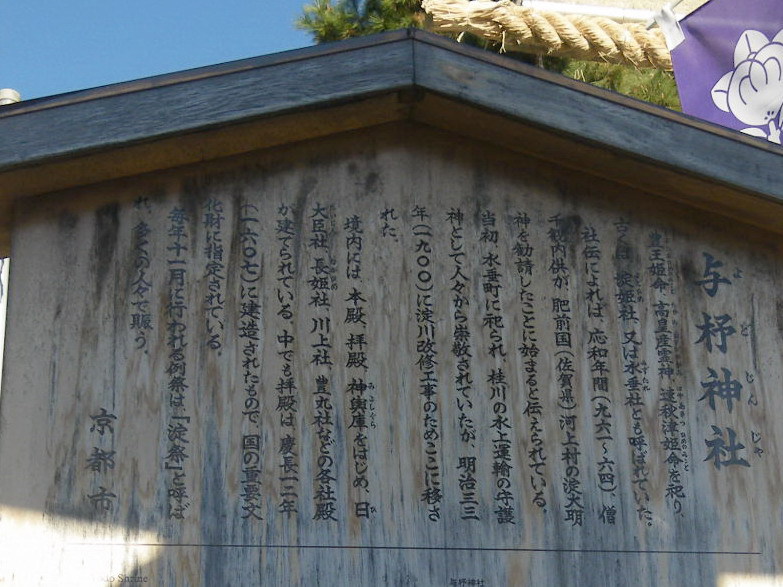 与杼神社
よどじんじゃ
豊玉姫命、高皇産霊神、速秋津姫命を祀り、
古くは、淀姫社、又は水垂社とも呼ばれていた。
社伝によれば、応和年間(九六一〜六四)、僧
千観内供が、肥前国(佐賀県)河上村の淀大明
神を勧請したことに始まると伝えられている。
当初、水垂町に祀られ、桂川の水上運輸の守護
神として人々から崇敬されていたが、明治三三
年(一九〇〇)に淀川改修工事のためここに移さ
れた。
境内には、本殿、拝殿、神輿庫をはじめ、日
大臣社、長姫社、川上社、豊丸社などの各社殿
が建てられている。中でも拝殿は、慶長一二年
(一六〇七)に建造されたもので、国の重要文
化財に指定されている。
毎年十一月に行われる例祭は、「淀祭」と呼ば
れ、多くの人々で賑う。
京都市
Shrine
与杼神社